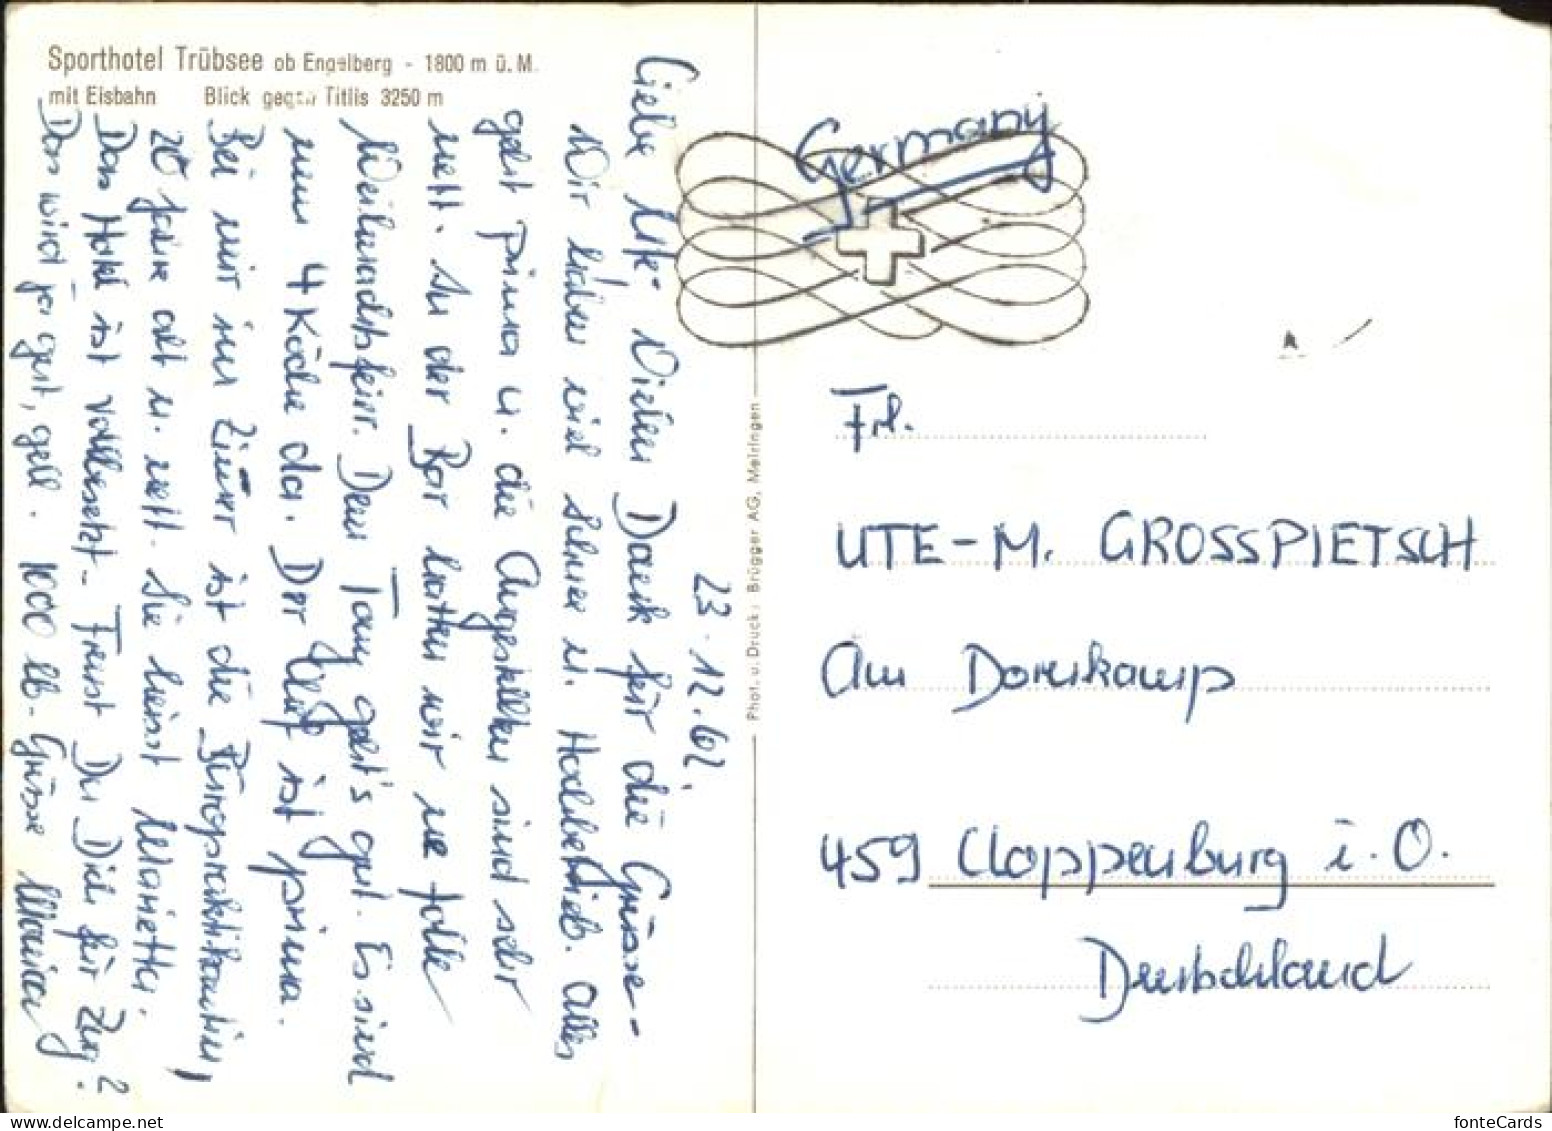 Sporthotel Trübsee ob Engelberg - 1800 m ü. M.
mit Eisbahn Blick gegen Titlis 3250 m
23.12.62.
Liebe Ute, Vielen Dank für die Grüsse-
Wir haben viel Schnee u. Hochbetrieb. Alles
geht prima u. die Angestellten sind sehr
nett. In der Bar hatten wir ne tolle
Weihnachtsfeier. Dem Tony geht's gut. Es sind
nun 4 Köche da. Der Chef ist prima.
Bei mir im Zimmer ist die Büropraktikantin,
20 Jahre alt u. nett. Sie heisst Marietta.
Das Hotel ist vollbesetzt. Freust Du Dich für Zug?
Das wird ja gut, gell. 1000 lb. Grüsse Monica
Phot. u. Druck: Brügger AG, Meiringen
Germany
Frl.
UTE-M. GROSSPIETSCH
Am Dornkamp
459 Cloppenburg i. O.
Deutschland
fonteCards